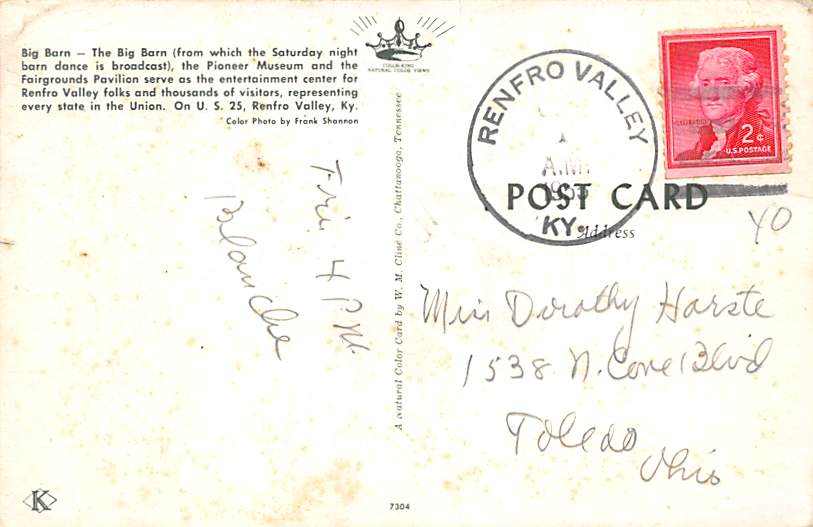 Big Barn — The Big Barn (from which the Saturday night
barn dance is broadcast), the Pioneer Museum and the
Fairgrounds Pavilion serve as the entertainment center for
Renfro Valley folks and thousands of visitors, representing
every state in the Union. On U. S. 25, Renfro Valley, Ky.
Color Photo by Frank Shannon
COLOR-KING
NATURAL COLOR VIEWS
A Natural Color Card by W. M. Cline Co., Chattanooga, Tennessee
Fri 4 PM
Blanche
RENFRO VALLEY
1
A.M.
KY.
2¢
U.S. POSTAGE
POST CARD
Address
40
Miss Dorothy Harste
1538 N. Cove Blvd
Toledo
Ohio
K
7304